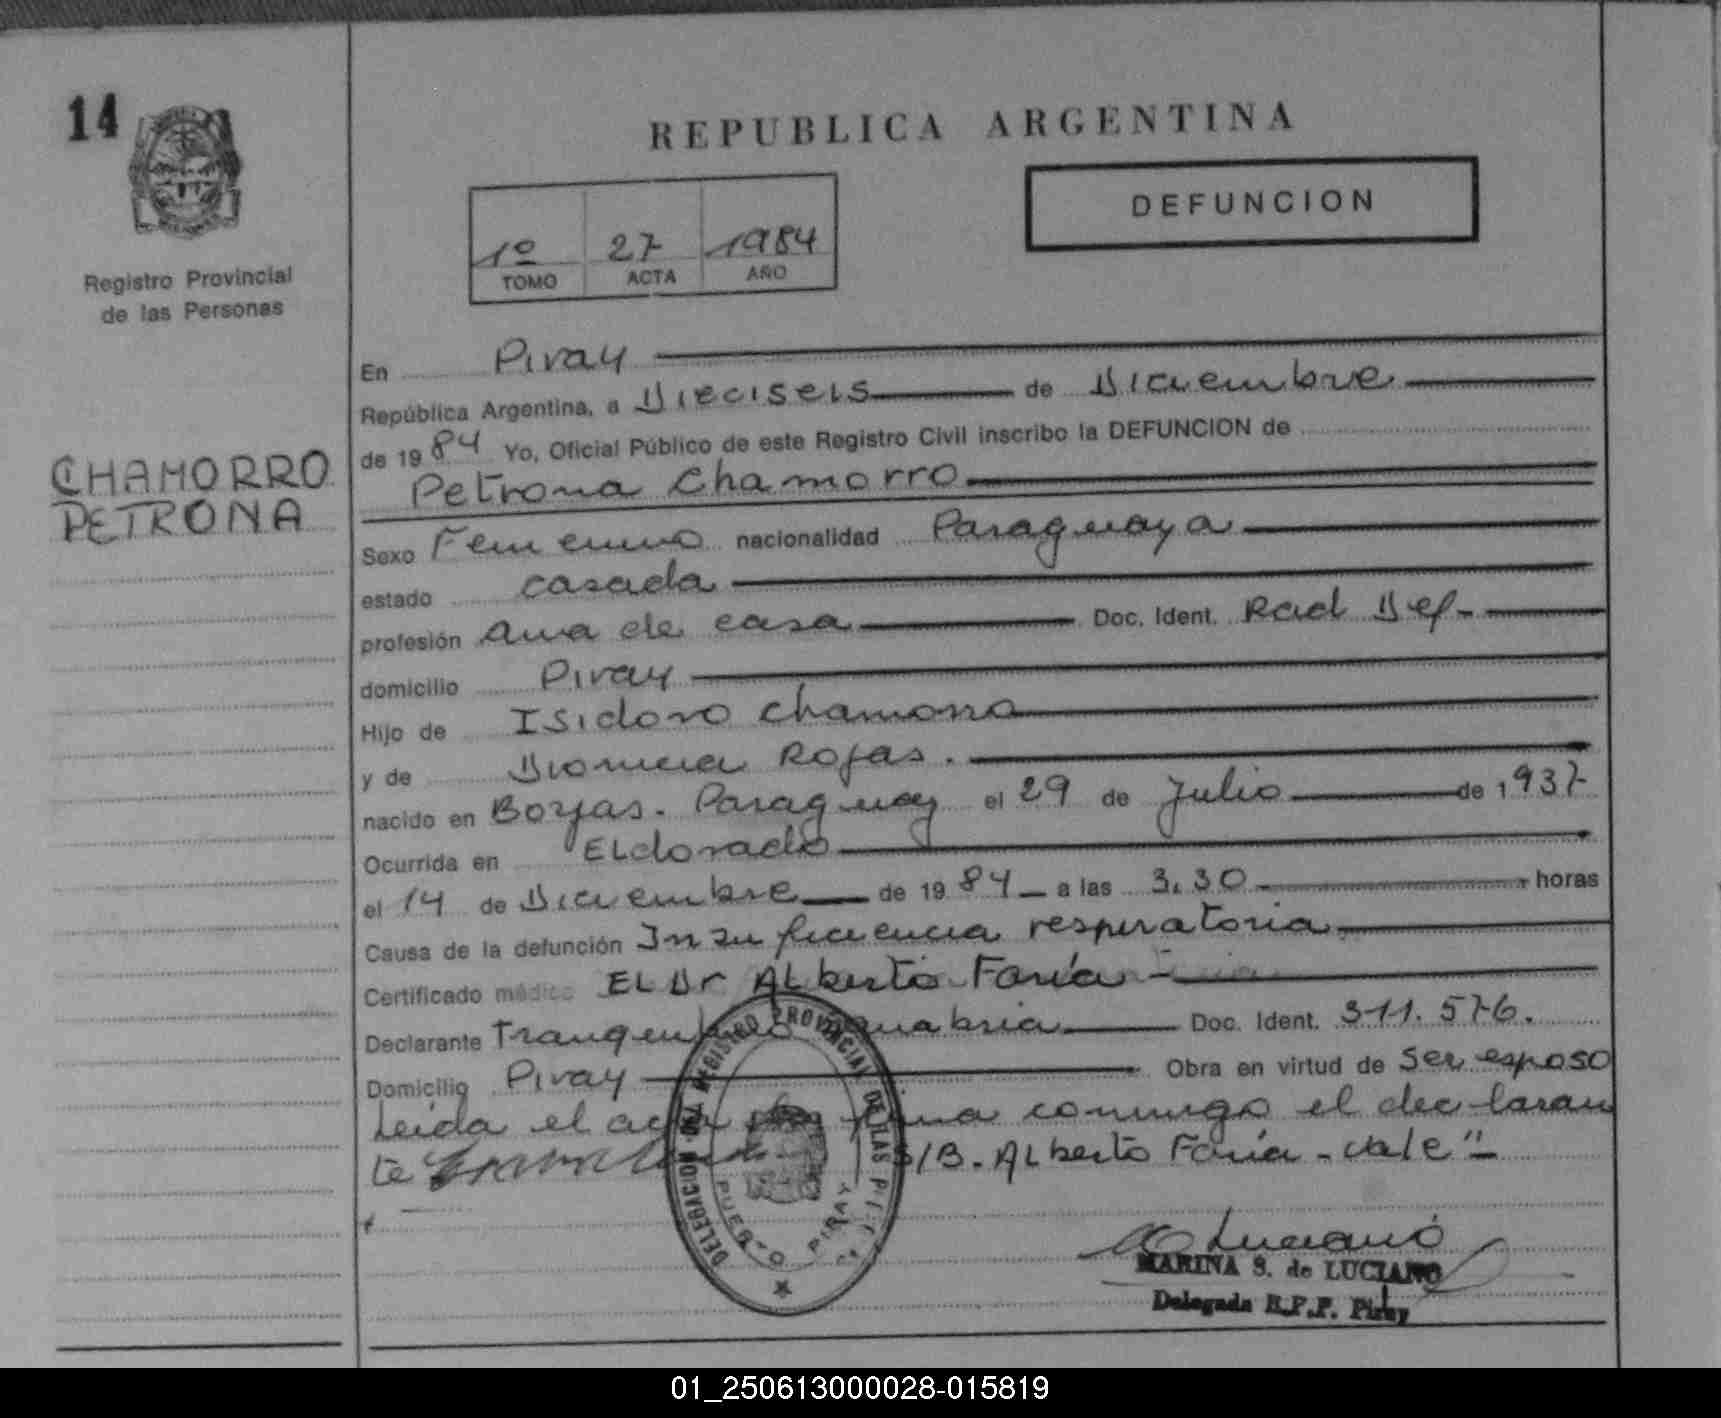 14
REPUBLICA ARGENTINA
DEFUNCION
1º 27 1984
TOMO ACTA AÑO
Registro Provincial
de las Personas
CHAMORRO
PETRONA
En Piray
República Argentina, a Dieciseis de Diciembre
de 1984 Yo, Oficial Público de este Registro Civil inscribo la DEFUNCION de
Petrona Chamorro
Sexo Femenino nacionalidad Paraguaya
estado casada
profesión ama de casa Doc. Ident. Rad Def-
domicilio Piray
Hijo de Isidoro Chamorro
y de Rojas.
nacido en Borjas. Paraguay el 29 de Julio de 1937
Ocurrida en Eldorado
el 14 de Diciembre de 1984 a las 3.30 horas
Causa de la defunción Insuficiencia respiratoria
Certificado médico El Dr Alberto Faría
Declarante Doc. Ident. 311.576.
Domicilio Piray Obra en virtud de ser esposo
Leida el acta firma conmigo el declaran
te S/B. Alberto Faría - vale"
DELEGACION REGISTRO PROVINCIAL DE LAS P
PUERTO PIRAY
Luciano
MARINA S. de LUCIANO
Delegada R.P.P. Piray
01_250613000028-015819